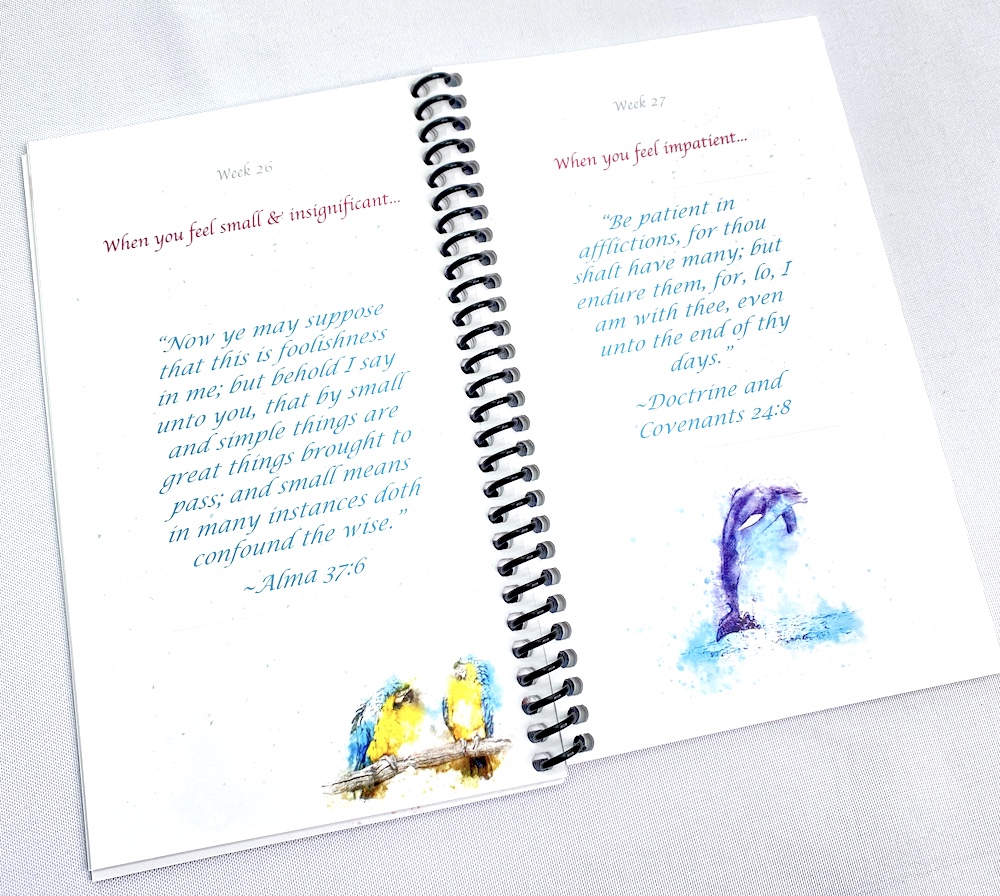 Week 26
When you feel small & insignificant...
“Now ye may suppose
that this is foolishness
in me; but behold I say
unto you, that by small
and simple things are
great things brought to
pass; and small means
in many instances doth
confound the wise.”
~Alma 37:6
Week 27
When you feel impatient...
“Be patient in
afflictions, for thou
shalt have many; but
endure them, for, lo, I
am with thee, even
unto the end of thy
days.”
~Doctrine and
Covenants 24:8